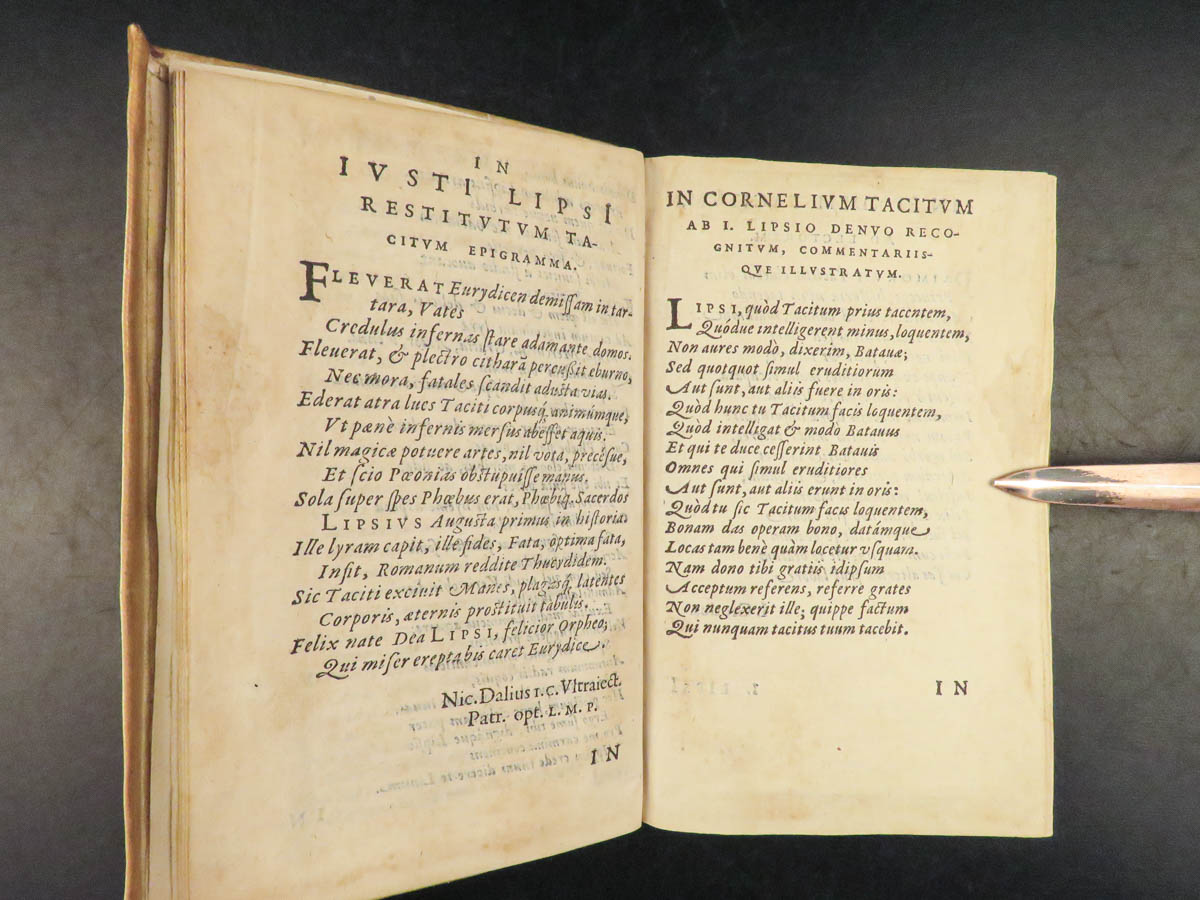 IN
IVSTI LIPSI
RESTITVTVM TA-
CITVM EPIGRAMMA.
FLEVERAT Eurydicen demiſſam in tar-
tara, Vates
Credulus infernas ſtare adamante domos.
Fleuerat, & plectro citharā percußit eburno,
Nec mora, fatales ſcandit aduſta vias.
Ederat atra lues Taciti corpusq́; animúmque,
Vt pænè infernis merſus abeſſet aquis.
Nil magicæ potuere artes, nil vota, precésue,
Et ſcio Pæonias obſtupuiſſe manus.
Sola ſuper ſpes Phœbus erat, Phœbiq́; Sacerdos
LIPSIVS Auguſta primus in hiſtoria.
Ille lyram capit, ille fides, Fata, òptima fata,
Inſit, Romanum reddite Thucydidem.
Sic Taciti exciuit Manes, plagasq́; latentes
Corporis, æternis proſtituit tabulis.
Felix nate Dea LIPSI, felicior Orpheo;
Qui miſer erepta bis caret Eurydice.
Nic. Dalius I. C. Vltraiect.
Patr. opt. L. M. P.
IN
IN CORNELIVM TACITVM
AB I. LIPSIO DENVO RECO-
GNITVM, COMMENTARIIS-
QVE ILLVSTRATVM.
LIPSI, quòd Tacitum prius tacentem,
Quódue intelligerent minus, loquentem,
Non aures modò, dixerim, Batauæ;
Sed quotquot ſimul eruditiorum
Aut ſunt, aut aliis fuere in oris:
Quòd hunc tu Tacitum facis loquentem,
Quòd intelligat & modo Batauus
Et qui te duce ceſſerint Batauis
Omnes qui ſimul eruditiores
Aut ſunt, aut aliis erunt in oris:
Quòd tu ſic Tacitum facis loquentem,
Bonam das operam bono, datámque
Locas tam benè quàm locetur vſquam.
Nam dono tibi gratiis idipſum
Acceptum referens, referre grates
Non neglexerit ille; quippe factum
Qui nunquam tacitus tuum tacebit.
IN